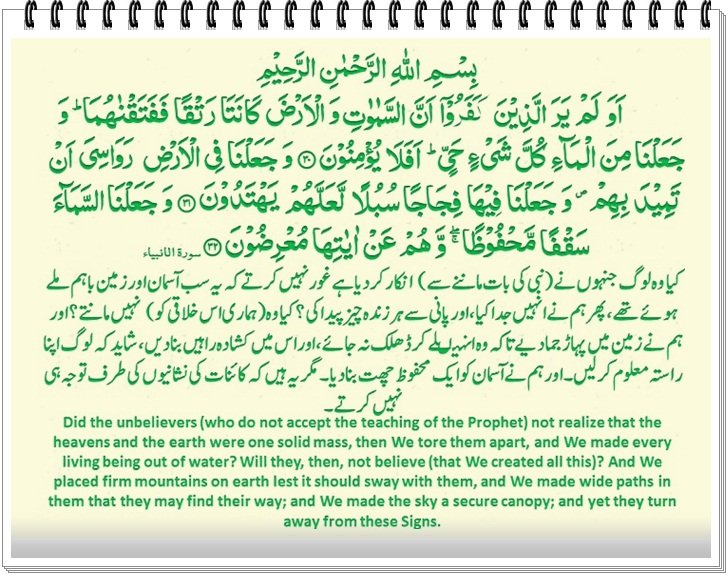 بِسْمِ اللهِ الرَّحْمٰنِ الرَّحِيْمِ
اَوَ لَمْ يَرَ الَّذِيْنَ كَفَرُوْۤا اَنَّ السَّمٰوٰتِ وَ الْاَرْضَ كَانَتَا رَتْقًا فَفَتَقْنٰهُمَا ؕ وَ
جَعَلْنَا مِنَ الْمَآءِ كُلَّ شَيْءٍ حَيٍّ ؕ اَفَلَا يُؤْمِنُوْنَ ۝۳۰ وَ جَعَلْنَا فِي الْاَرْضِ رَوَاسِيَ اَنْ
تَمِيْدَ بِهِمْ ۪ وَ جَعَلْنَا فِيْهَا فِجَاجًا سُبُلًا لَّعَلَّهُمْ يَهْتَدُوْنَ ۝۳۱ وَ جَعَلْنَا السَّمَآءَ
سَقْفًا مَّحْفُوْظًا ۖۚ وَّ هُمْ عَنْ اٰيٰتِهَا مُعْرِضُوْنَ ۝۳۲ سورة الانبیاء
کیا وہ لوگ جنہوں نے (نبی کی بات ماننے سے) انکار کر دیا ہے غور نہیں کرتے کہ یہ سب آسمان اور زمین باہم ملے
ہوئے تھے، پھر ہم نے انہیں جدا کیا، اور پانی سے ہر زندہ چیز پیدا کی؟ کیا وہ (ہماری اس خلاقی کو) نہیں مانتے؟ اور
ہم نے زمین میں پہاڑ جما دیے تاکہ وہ انہیں لے کر ڈھلک نہ جائے، اور اس میں کشادہ راہیں بنا دیں، شاید کہ لوگ اپنا
راستہ معلوم کر لیں۔ اور ہم نے آسمان کو ایک محفوظ چھت بنا دیا۔ مگر یہ ہیں کہ کائنات کی نشانیوں کی طرف توجہ ہی
نہیں کرتے۔
Did the unbelievers (who do not accept the teaching of the Prophet) not realize that the
heavens and the earth were one solid mass, then We tore them apart, and We made every
living being out of water? Will they, then, not believe (that We created all this)? And We
placed firm mountains on earth lest it should sway with them, and We made wide paths in
them that they may find their way; and We made the sky a secure canopy; and yet they turn
away from these Signs.